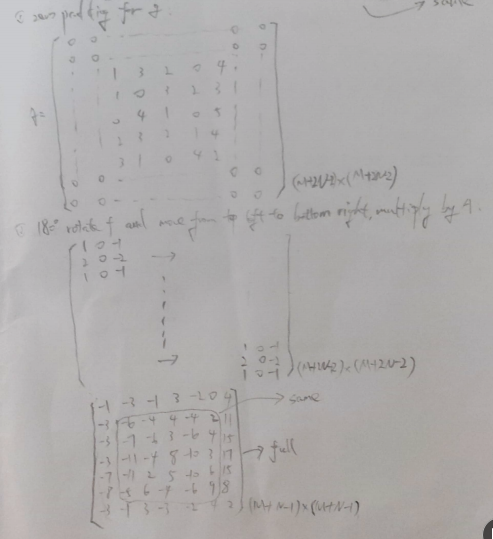 same
zero padding for g.
0 0 0 0
0 0 0 0
1 3 2 0 4
1 0 3 2 3
0 4 1 0 5
2 3 2 1 4
3 1 0 4 2
0 0 0 0
0 0 0 0
(M+2N-2)×(M+2N-2)
180° rotate f and move from top left to bottom right, multiply by
1 0 -1
2 0 -2
1 0 -1
1 0 -1
2 0 -2
1 0 -1
(M+2N-2)×(M+2N-2)
-1 -3 -1 3 -2 0 4
-3 -6 -4 4 -4 2 11
same
-3 -7 -6 3 -6 4 15
-3 -11 -4 8 -10 3 17
full
-7 -11 2 5 -10 6 15
-8 -5 6 -4 -6 9 8
-3 -1 3 -3 -2 4 2
(M+N-1)×(M+N-1)